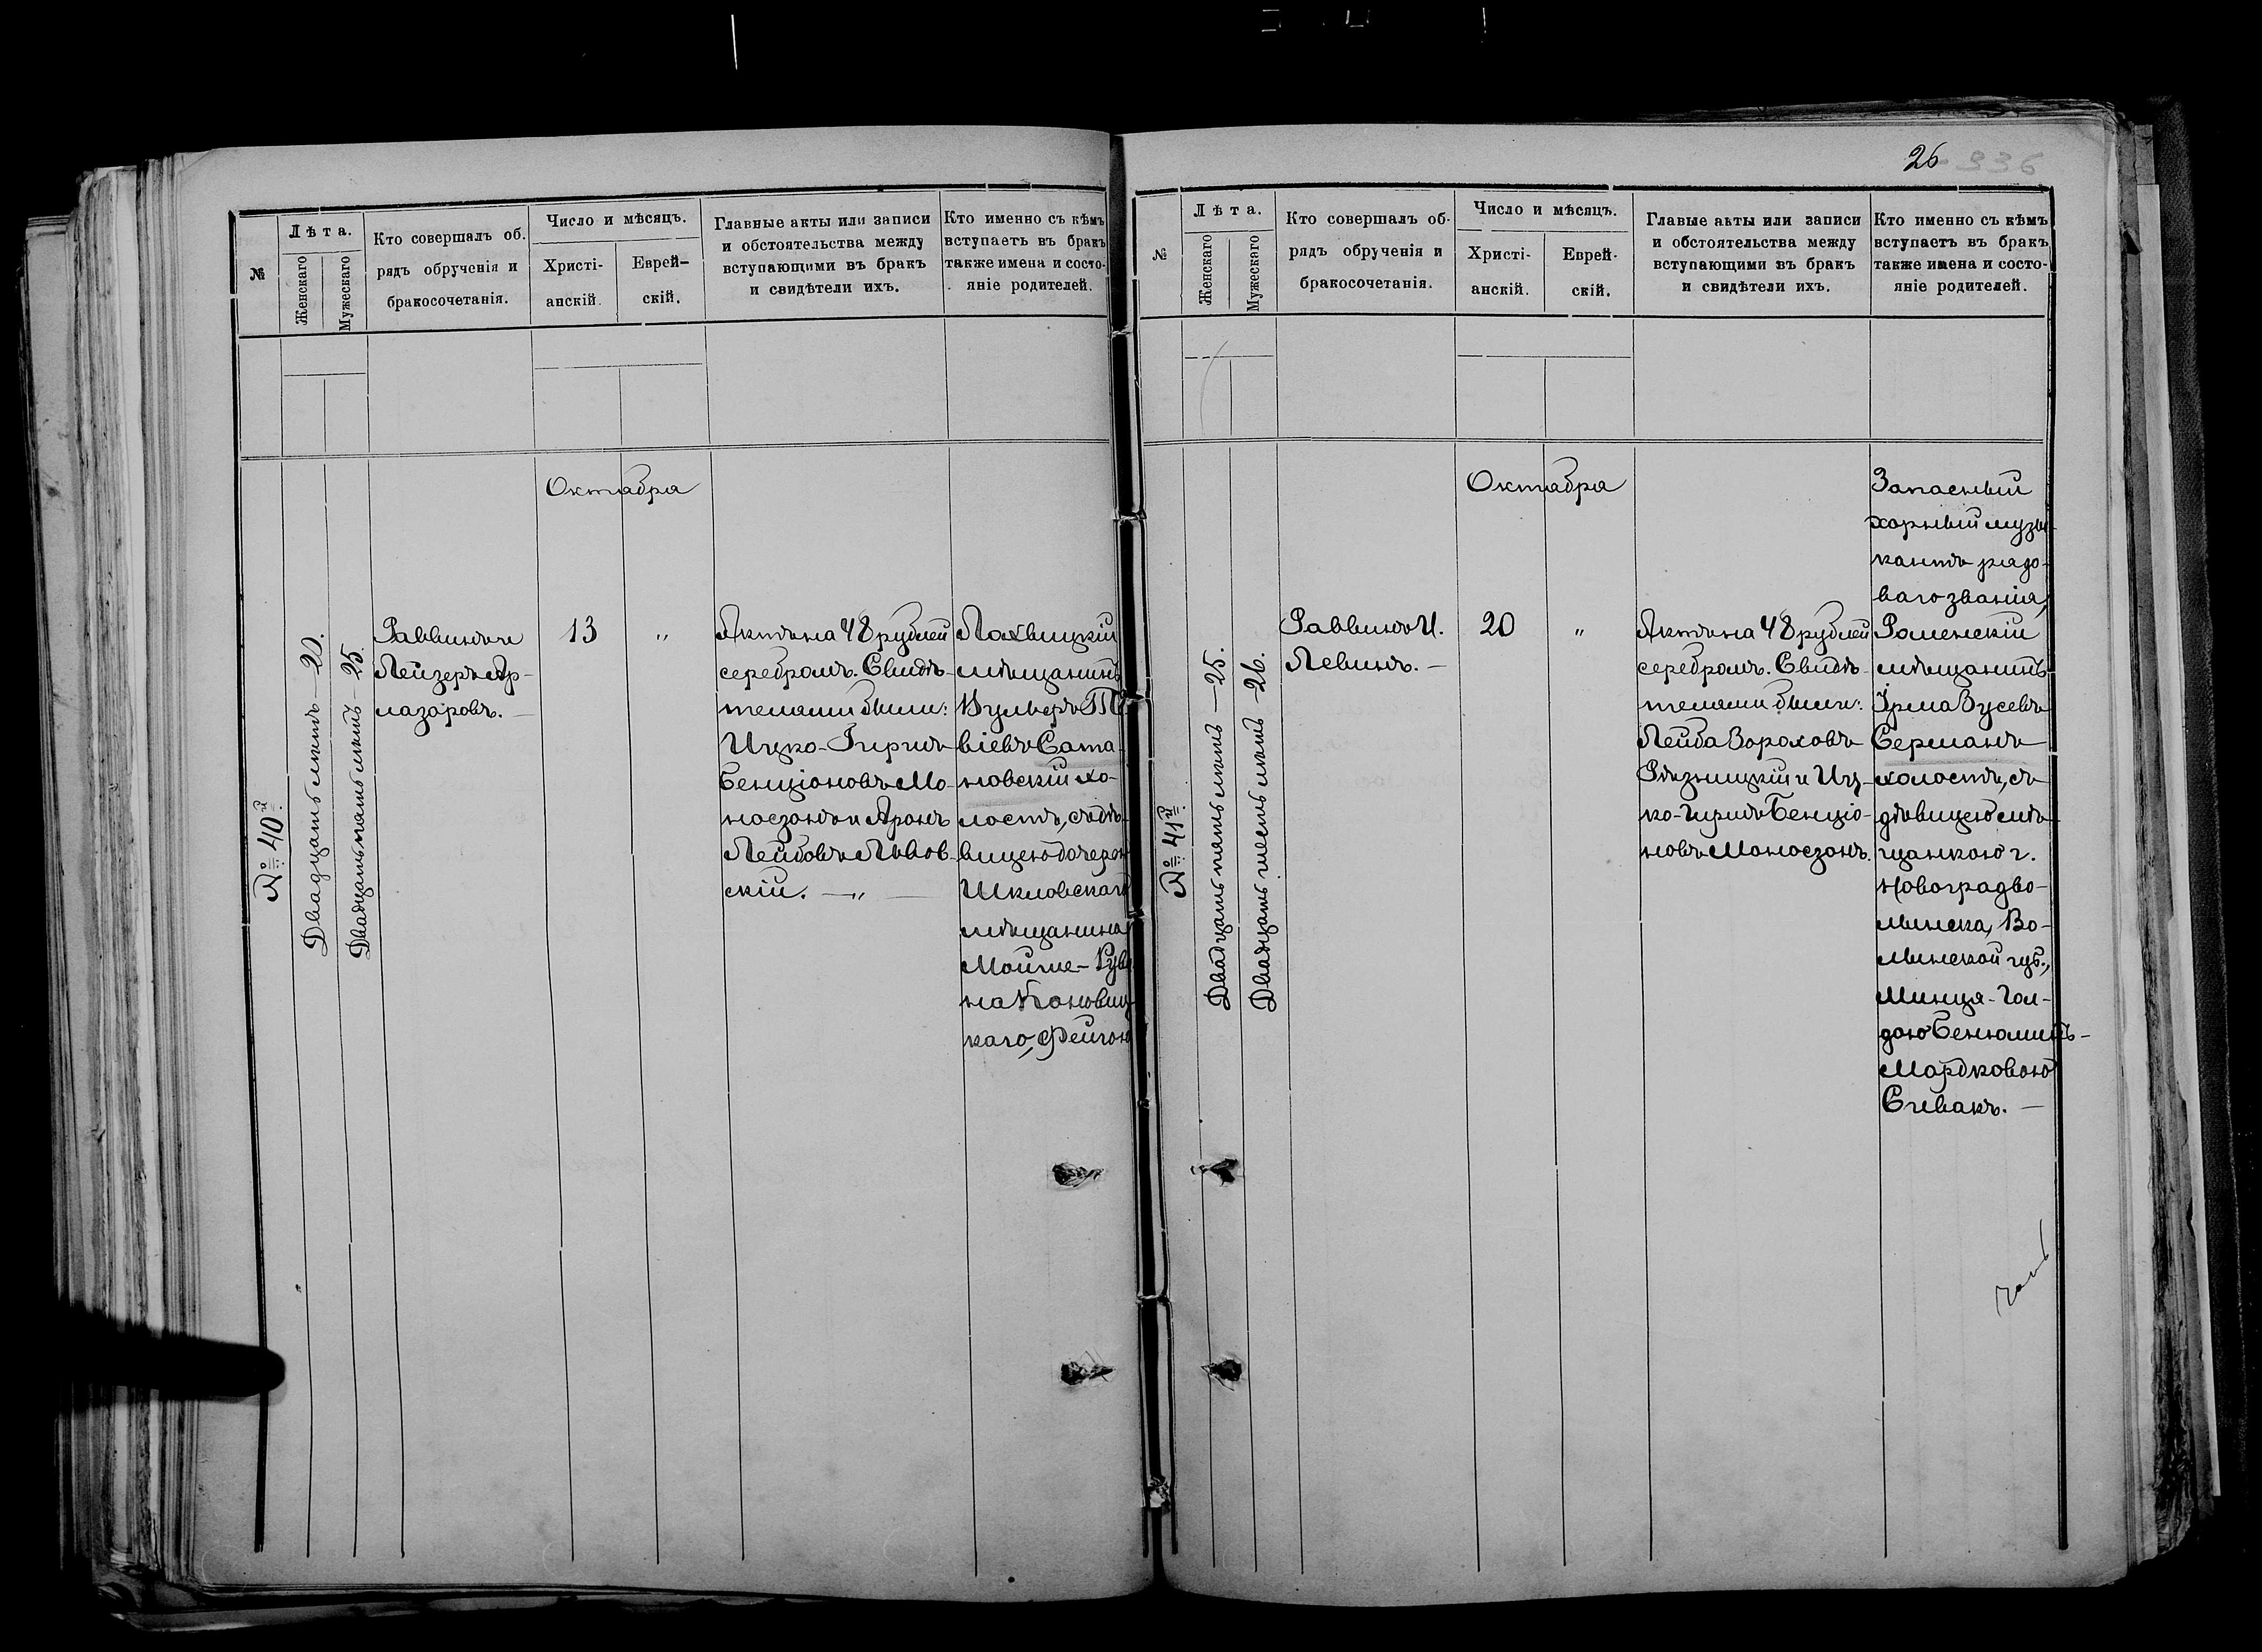 №
Лѣта.
Женскаго
Мужескаго
Кто совершалъ об-
рядъ обрученія и
бракосочетанія.
Число и мѣсяцъ.
Христі-
анскій.
Еврей-
скій.
Главные акты или записи
и обстоятельства между
вступающими въ бракъ
и свидѣтели ихъ.
Кто именно съ кѣмъ
вступаетъ въ бракъ
также имена и состо-
яніе родителей.
№ 40й.
Двадцать лѣтъ — 20.
Двадцать пять лѣтъ - 25.
Раввинъ и
Лейзеръ Ар-
лазаровъ. —
Октабра
13
"
Актъ на 48 рублей
серебромъ. Свидѣ-
телями были:
Ицко-Гиршъ
Бенціоновъ Мо-
носзонъ и Аронъ
Лейбовъ Львов-
скій. — " —
Лохвицкій
мѣщанинъ
Вульфъ
віевъ Сата-
новскій хо-
лостъ, съ дѣ-
вицею дочерью
Шкловскаго
мѣщанина
Мойше-Руви
на Кановиц-
каго, Фейгою
26 936
№
Лѣта.
Женскаго
Мужескаго
Кто совершалъ об-
рядъ обрученія и
бракосочетанія.
Число и мѣсяцъ.
Христі-
анскій.
Еврей-
скій.
Главые акты или записи
и обстоятельства между
вступающими въ бракъ
и свидѣтели ихъ.
Кто именно съ кѣмъ
вступаетъ въ бракъ
также имена и состо-
яніе родителей.
№ 41й.
Двадцать пять лѣтъ — 25.
Двадцать шесть лѣтъ - 26.
Раввинъ И.
Левинъ. —
Октабра
20
"
Актъ на 48 рублей
серебромъ. Свидѣ-
телями были:
Лейба Вороховъ
Рѣзницкій и Иц-
ко-Гиршъ Бенціо-
новъ Моносзонъ.
Запасный
хорный музы-
кантъ рядо-
ваго званія,
Роменскій
мѣщанинъ
Ірма Зусевъ
Серманъ
холостъ, съ
дѣвицею мѣ-
щанкою г.
Новоградво-
лынска, Во-
лынской губ.,
Минця-Гол-
дою Бенюминъ-
Мордковою
Спивакъ. —